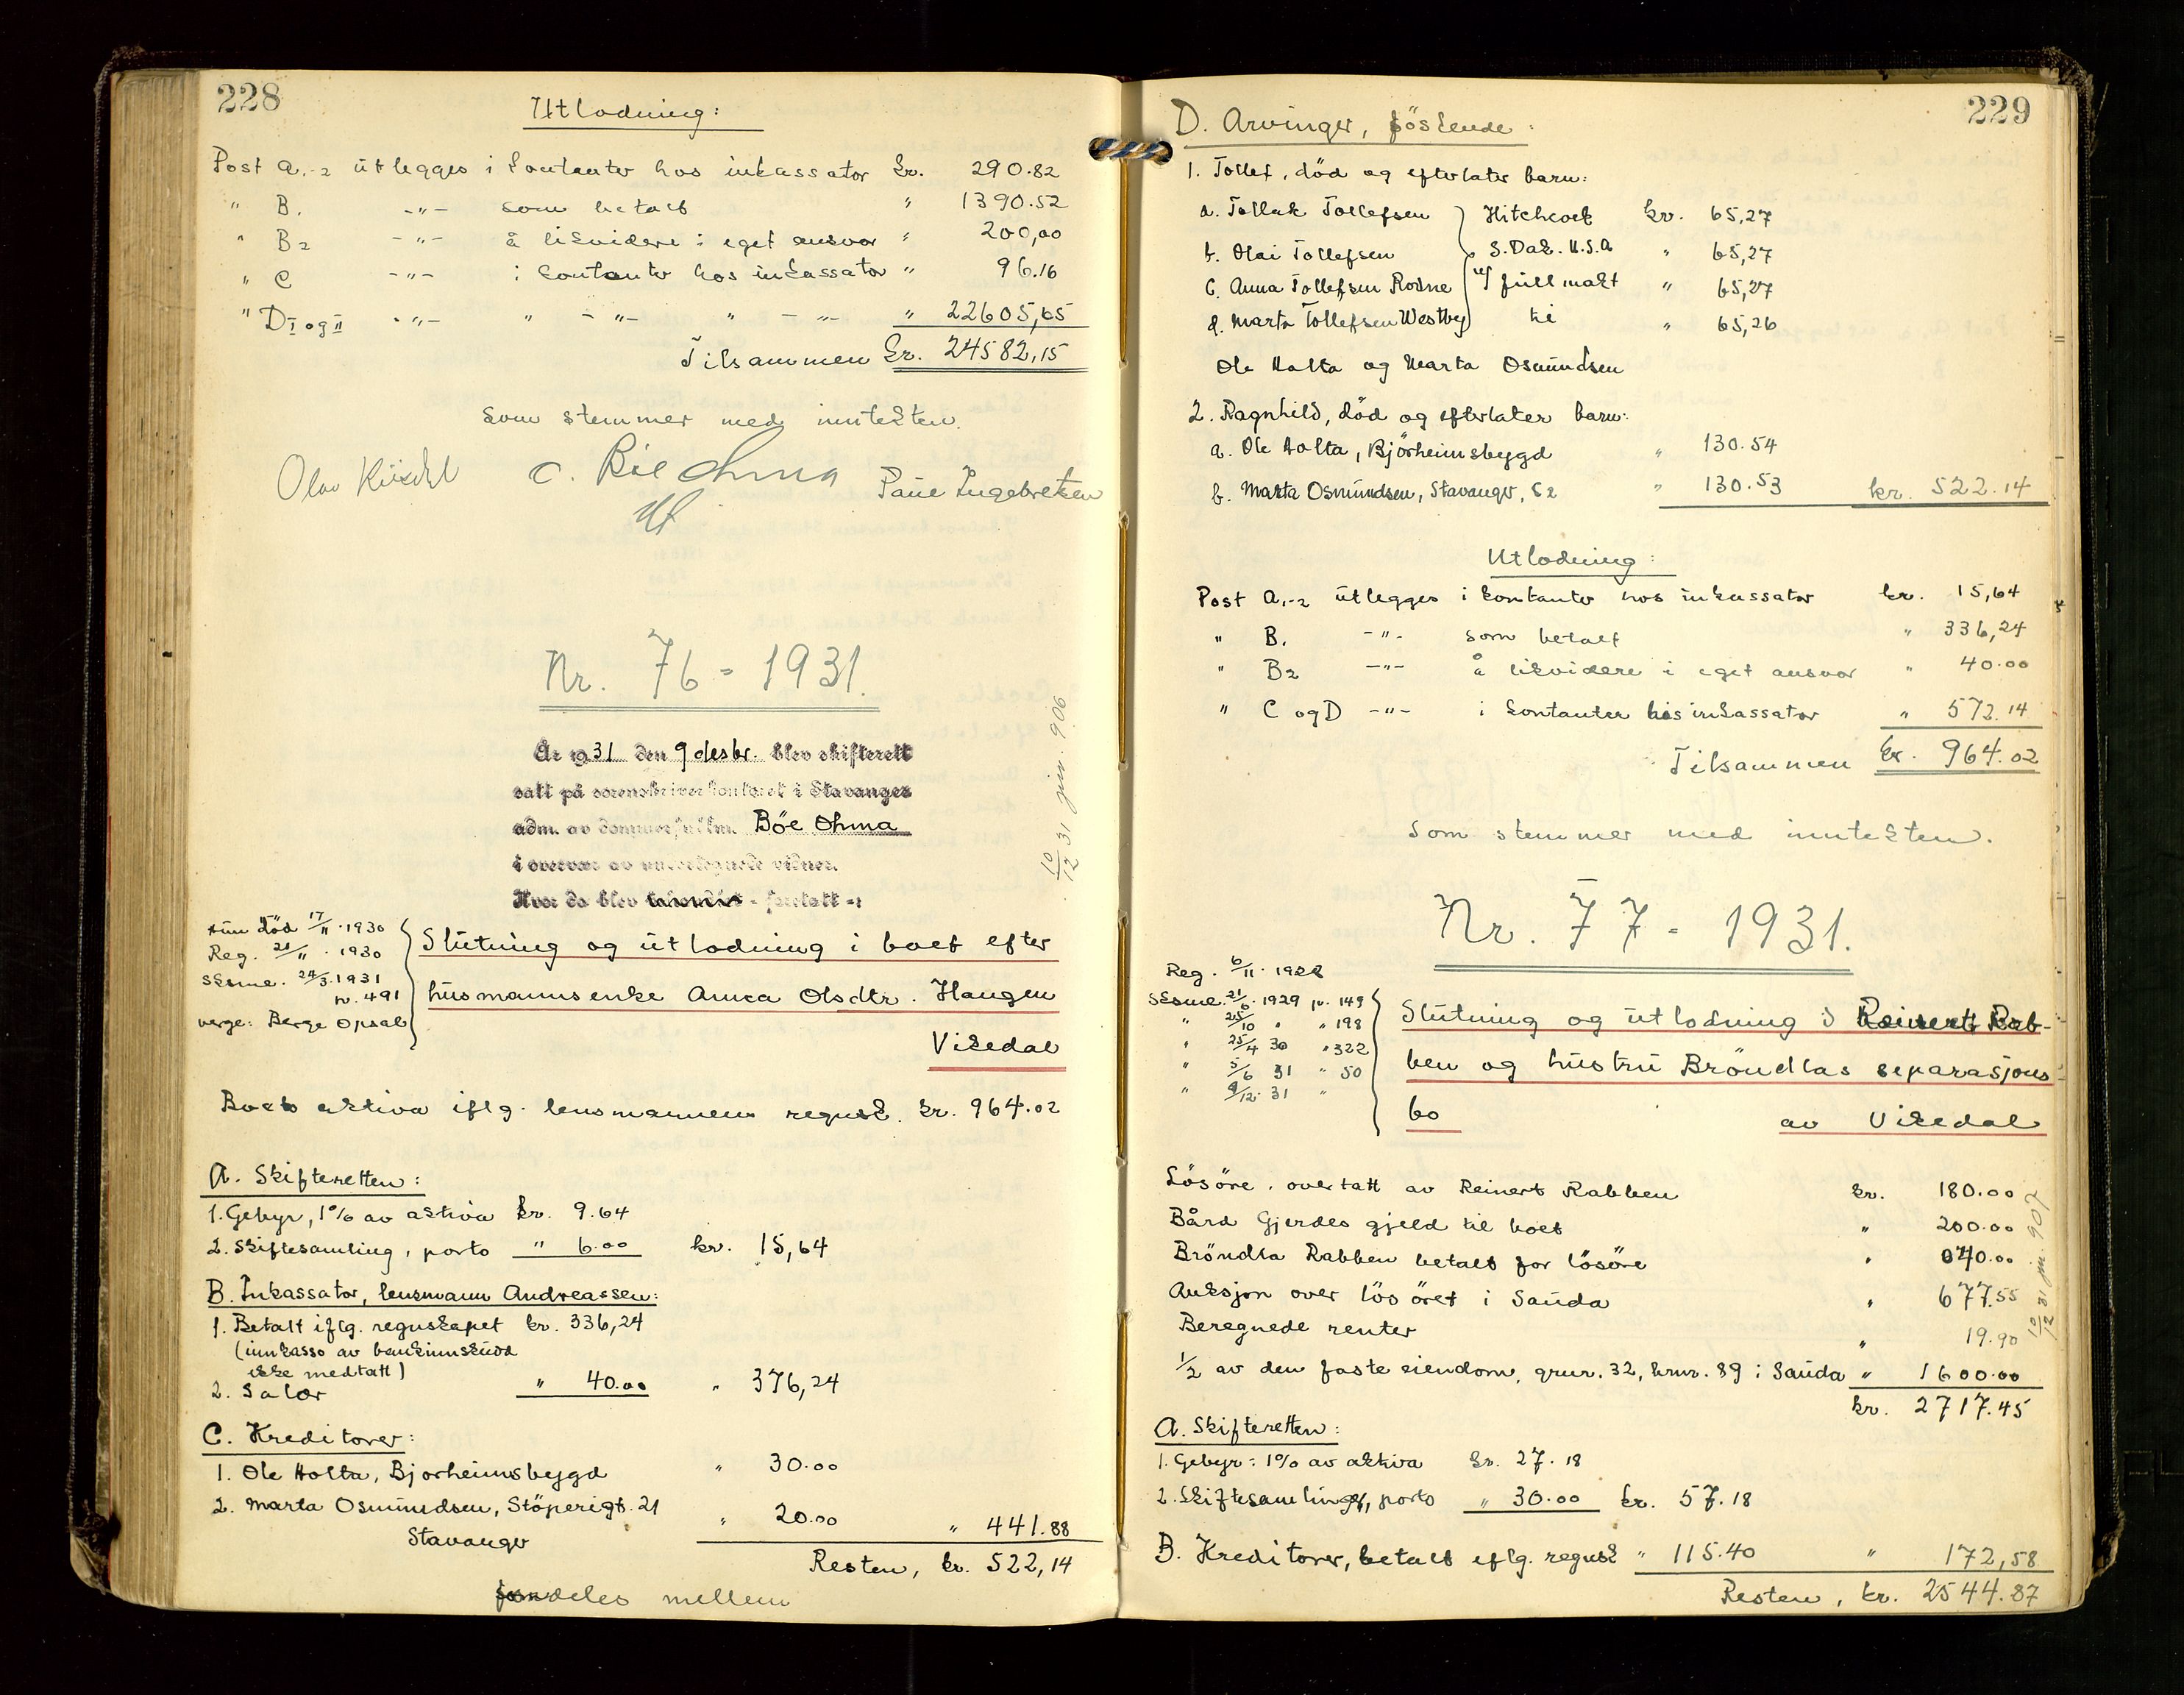 228
Utlodning:
Post A.1-2 utlegges i kontanter hos inkassator kr. 290.82
" B. -"- som betalt " 1390.52
" B2 -"- å likvidere i eget ansvar " 200,00
" C -"- i kontanter hos inkassator " 96.16
" D I og II -"- " -"- " -"- " 22605,65
Tilsammen kr. 24582,15
som stemmer med inntekten.
C. Böe Ohma Paul Ingebretsen
Nr. 76 - 1931.
År 1931 den 9 desbr. blev skifterett
satt på sorenskriverkontoret i Stavanger
adm. av dommerfullm. Böe Ohma
i overvær av undertegnede vidner.
Hvor da blev - foretatt -:
10/12 31 jnr. 906
død 17/11. 1930
Reg. 21/11. 1930
Sksml. 24/3. 1931
p. 491
verge: Berge Opsal
Slutning og utlodning i boet efter
husmannsenke Anna Olsdtr. Haugen
Vikedal
Boets aktiva iflg. lensmannens regnsk. kr. 964.02
A. Skifteretten:
1. Gebyr, 1% av aktiva kr. 9.64
2. Skiftesamling, porto " 6.00 kr. 15,64
B. Inkassator, lensmann Andreassen:
1. Betalt iflg. regnskapet kr. 336,24
(innkasso av bankinnskudd
ikke medtatt)
2. Salær " 40.00 " 376,24
C. Kreditorer:
1. Ole Holta, Bjorheimsbygd " 30.00
2. Marta Osmundsen, Stöperigt. 21
Stavanger " 20.00 " 441.88
Resten, kr. 522,14
deles mellem
229
D. Arvinger, söskende:
1. Tollef, död og efterlater barn:
a. Tollak Tollefsen Hitchcock kr. 65,27
b. Olai Tollefsen S. Dak. U.S.A " 65,27
c. Anna Tollefsen Rodne full makt " 65,27
d. Marta Tollefsen Westby til " 65,26
Ole Holta og Marta Osmundsen
2. Ragnhild, död og efterlater barn:
a. Ole Holta, Björheimsbygd " 130.54
b. Marta Osmundsen, Stavanger, C2 " 130.53 kr. 522.14
Utlodning:
Post A.1-2 utlegges i kontanter hos inkassator kr. 15,64
" B. -"- som betalt " 336,24
" B2 -"- å likvidere i eget ansvar " 40.00
" C og D -"- i kontanter hos inkassator " 572.14
Tilsammen kr. 964.02
som stemmer med inntekten.
Nr. 77 - 1931.
Reg. 6/11. 1928
Sksml. 21/6. 1929 p. 149
" 25/10 " " 198
" 25/4 30 " 322
" 5/6 31 " 50
" 9/12. 31 "
Slutning og utlodning i Reinert Rab-
ben og hustru Bröndlas separasjons-
bo av Vikedal
Lösöre, overtatt av Reinert Rabben kr. 180.00
Bård Gjerdes gjeld til boet " 200.00
Bröndla Rabben betalt for lösöre " 040.00
Auksjon over lösöret i Sauda " 677.55
Beregnede renter " 19.90
1/2 av den faste eiendom, gnr. 32, brnr. 89 i Sauda " 1600.00
kr. 2717.45
10/12 31 jnr. 907
A. Skifteretten:
1. Gebyr: 1% av aktiva kr. 27.18
2. Skiftesamlinger, porto " 30.00 kr. 57.18
B. Kreditorer, betalt iflg. regnsk " 115.40 " 172,58
Resten, kr. 2544.87